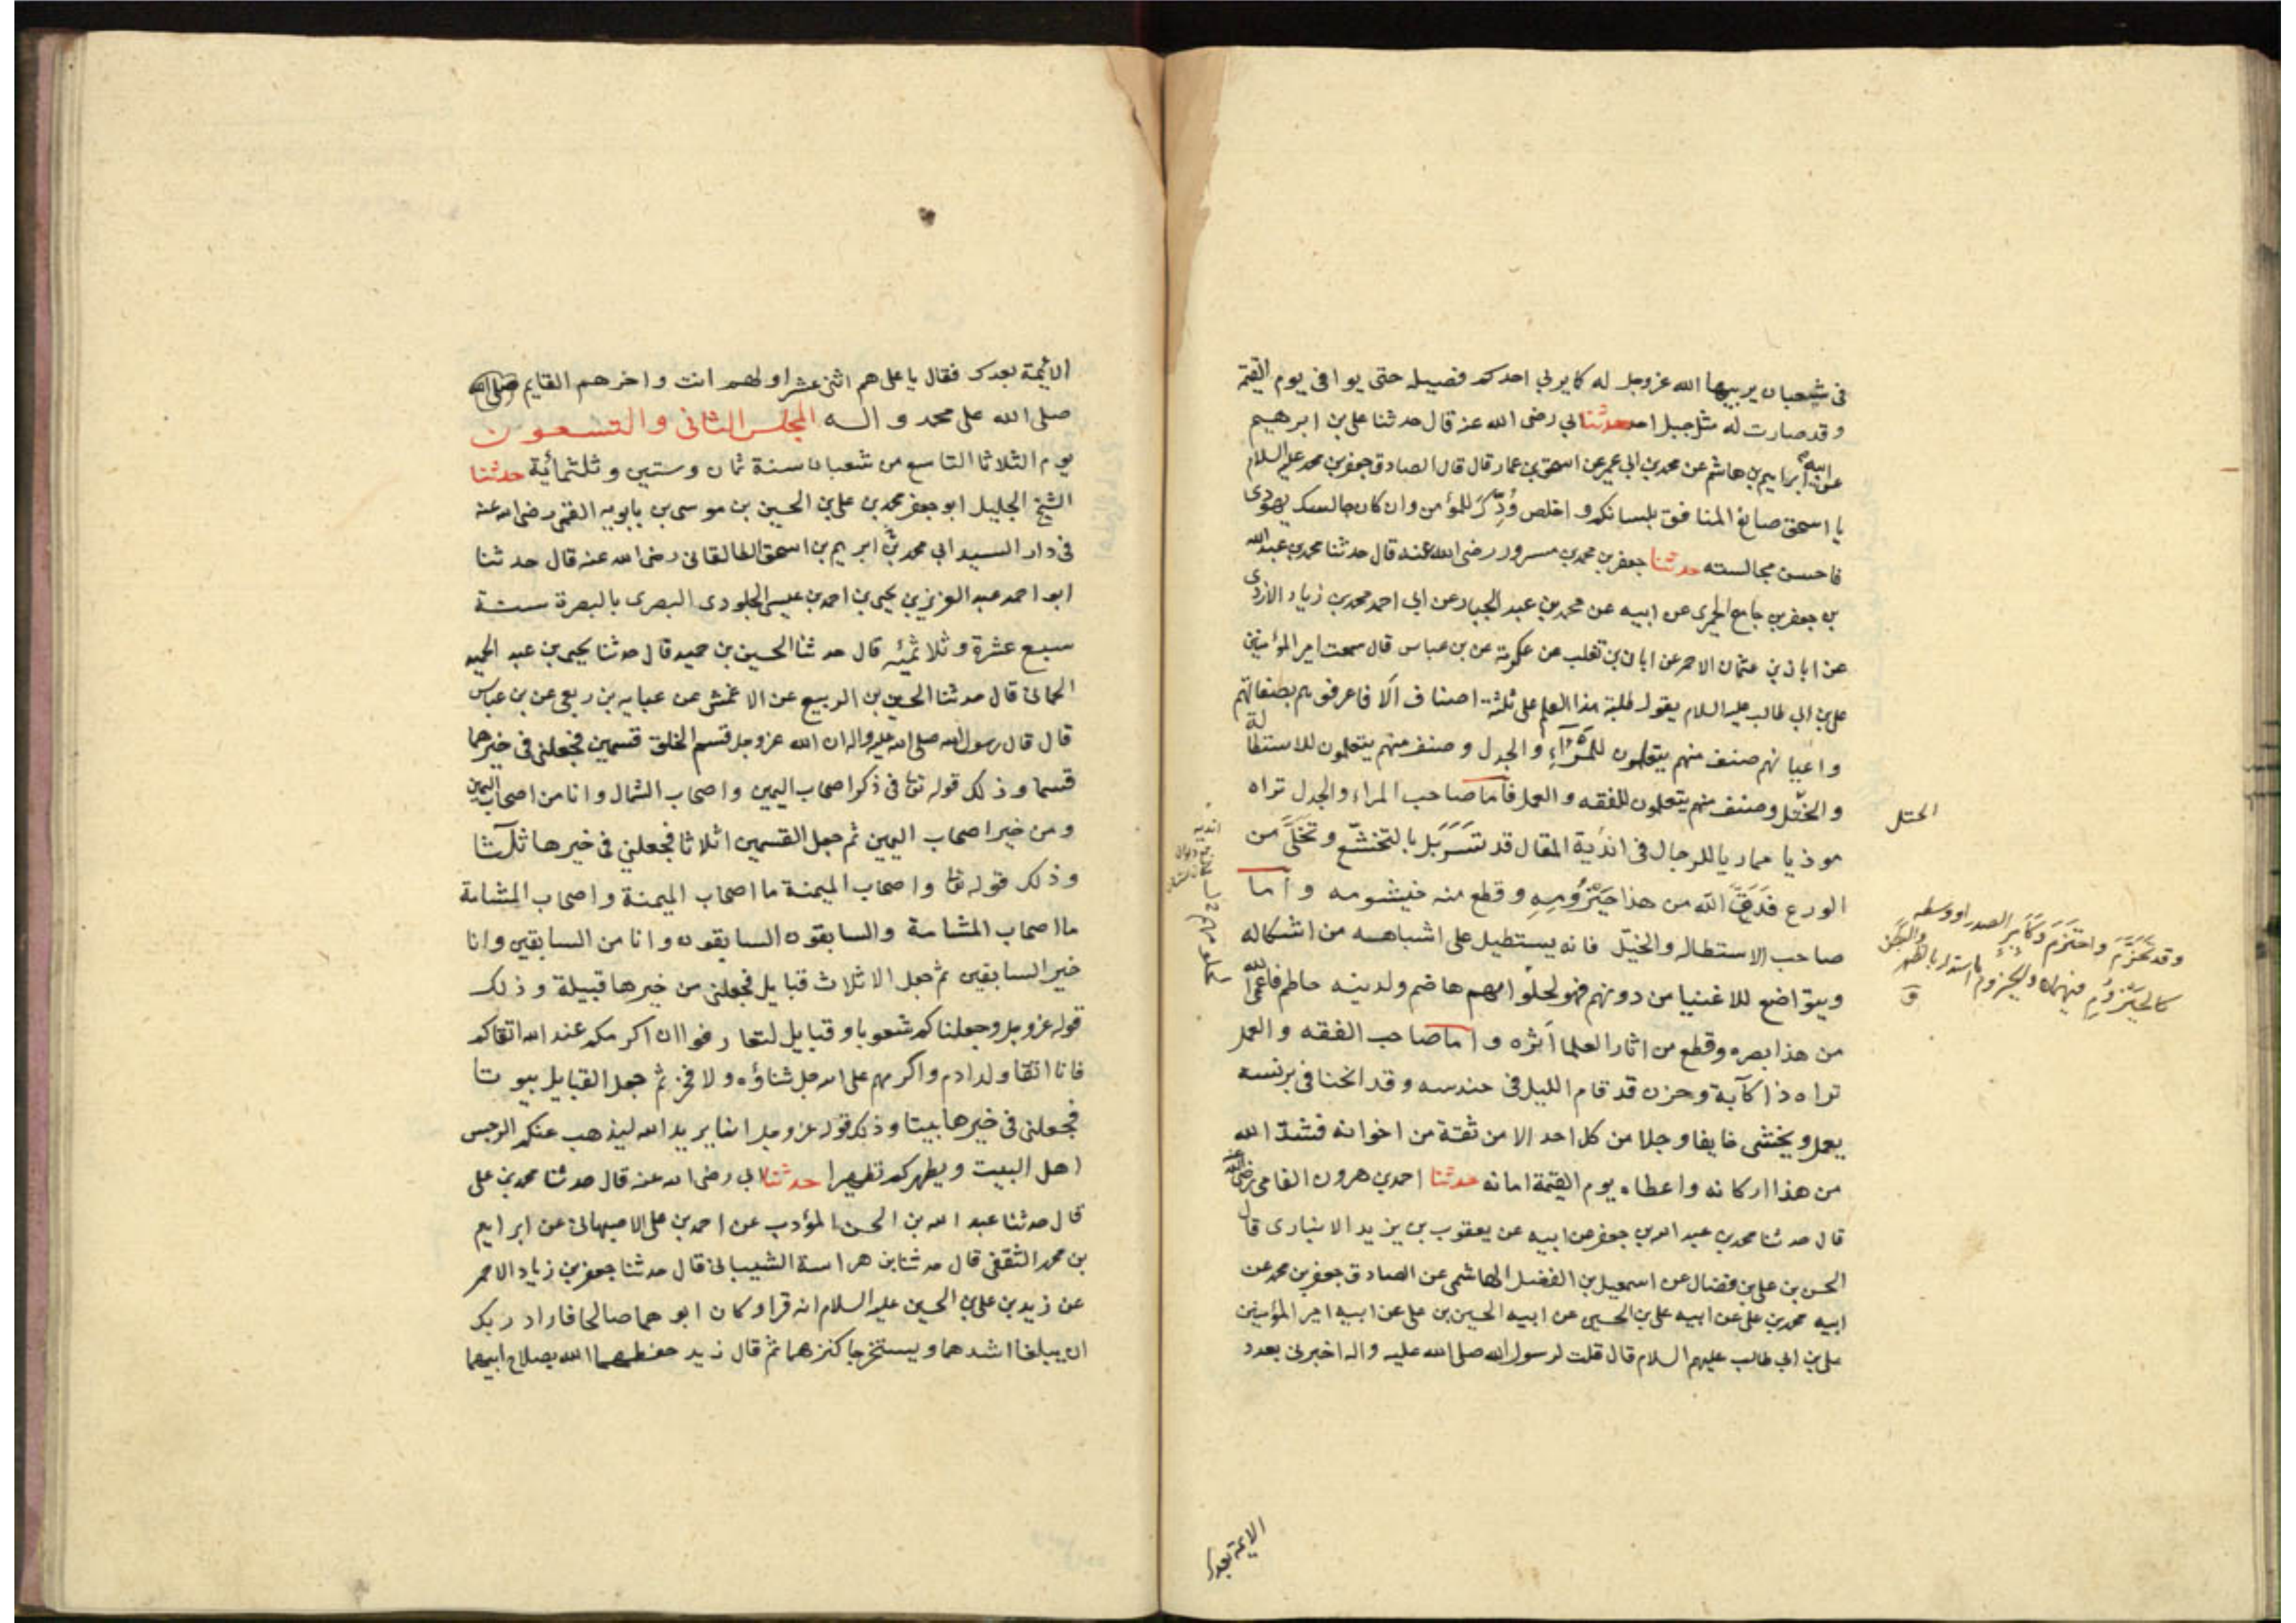 في شعبان يربيها الله عزوجل له كما يربي احدكم فصيله حتى يوافى يوم القيمة
وقد صارت له مثل جبل احد حدثنا ابي رضى الله عنه قال حدثنا على بن ابرهيم
عن ابيه ابراهيم بن هاشم عن محمد بن ابي عمير عن اسحق بن عمار قال قال الصادق جعفر بن محمد عليه السلام
يا اسحق صانع المنافق بلسانك و اخلص وُدِّكَ للمؤمن وان كان جالسك يهودى
فاحسن مجالسته حدثنا جعفر بن محمد بن مسرور رضى الله عنه قال حدثنا محمد بن عبد الله
بن جعفر بن جامع الحميرى عن ابيه عن محمد بن عبد الجبار عن ابي احمد محمد بن زياد الازدى
عن ابان بن عثمان الاحمر عن ابان بن تغلب عن عكرمة عن بن عباس قال سمعت امير المؤمنين
على بن ابي طالب عليه السلام يقول طلبة هذا العلم على ثلثة اصناف الا فاعرفوهم بصفاتهم
واعيانهم صنف منهم يتعلمون للمِرَآءِ والجدل وصنف منهم يتعلمون للاستطالة
والختل وصنف منهم يتعلمون للفقه والعمل فاما صاحب المراء والجدل تراه
موذيا مماريا للرجال في اندية المقال قد تَسَرْبَل بالتخشّع وتخلّى من
الورع فَدَقَّ الله من هذا حَيْزُومِهِ وقطع منه خيشومه وأما
صاحب الاستطاله والختل فانه يستطيل على اشباهه من اشكاله
ويتواضع للاغنيا من دونهم فهو لحلوائهم هاضم ولدينه حاطم فاعمى الله
من هذا بصره وقطع من اثار العلما أثره واما صاحب الفقه والعمل
تراه ذا كآبة وحزن قد قام الليل في حندسه وقد انحنا في برنسه
يعمل ويخشى خايفا وجلا من كل احد الا من ثقة من اخوانه فشدّ الله
من هذا اركانه واعطاه يوم القيمة امانه حدثنا احمد بن هرون الفامى رضى الله عنه
قال حدثنا محمد بن عبد الله بن جعفر عن ابيه عن يعقوب بن يزيد الانبارى قال
الحسن بن على بن فضال عن اسمعيل بن الفضل الهاشمى عن الصادق جعفر بن محمد عن
ابيه محمد بن على عن ابيه على بن الحسين عن ابيه الحسين بن على عن ابيه امير المؤمنين
على بن ابي طالب عليهم السلام قال قلت لرسول الله صلى الله عليه واله اخبرنى بعدد
الختل
وقد تَحَزَّمَ واحتزم وكأمير الصدر او وسطه
كالحَيْزُومِ فيهما والحيزوم ما استدار بالظهر والبطن
ق
الائمة بعدك
الائمة بعدك فقال يا على هم اثنى عشر اولهم انت واخرهم القايم
صلى الله على محمد واله المجلس الثانى والتسعون
يوم الثلاثا التاسع من شعبان سنة ثمان وستين وثلثمأية حدثنا
الشيخ الجليل ابو جعفر محمد بن على بن الحسين بن موسى بن بابويه القمى رضى الله عنه
في دار السيد ابي محمد ثنا ابراهيم بن اسحق الطالقانى رضى الله عنه قال حدثنا
ابو احمد عبد العزيز بن يحيى بن احمد بن عيسى الجلودى البصرى بالبصرة سنة
سبع عشرة وثلاثمئه قال حدثنا الحسين بن حميد قال حدثنا يحيى بن عبد الحميد
الحمانى قال حدثنا الحسين بن الربيع عن الاعمش عن عبايه بن ربعى عن بن عباس
قال قال رسول الله صلى الله عليه واله ان الله عزوجل قسم الخلق قسمين فجعلنى في خيرهما
قسما وذلك قوله تعا في ذكر اصحاب اليمين واصحاب الشمال وانا من اصحاب اليمين
ومن خير اصحاب اليمين ثم جعل القسمين اثلاثا فجعلنى في خيرها ثلثا
وذلك قوله تعا واصحاب الميمنة ما اصحاب الميمنة واصحاب المشامة
ما اصحاب المشامة والسابقون السابقون وانا من السابقين وانا
خير السابقين ثم جعل الاثلاث قبايل فجعلنى من خيرها قبيلة وذلك
قوله عزوجل وجعلناكم شعوبا وقبايل لتعارفوا ان اكرمكم عند الله اتقاكم
فانا اتقا ولد ادم واكرمهم على الله جل ثناؤه ولا فخر ثم جعل القبايل بيوتا
فجعلنى في خيرها بيتا وذلك قوله عزوجل انما يريد الله ليذهب عنكم الرجس
اهل البيت ويطهركم تطهيرا حدثنا ابي رضى الله عنه قال حدثنا محمد بن على
قال حدثنا عبد الله بن الحسن المؤدب عن احمد بن على الاصبهانى عن ابراهيم
بن محمد الثقفى قال حدثنا بن هراسة الشيبانى قال حدثنا جعفر بن زياد الاحمر
عن زيد بن على بن الحسين عليه السلام انه قرا وكان ابوهما صالحا فاراد ربك
ان يبلغا اشدهما ويستخرجا كنزهما ثم قال زيد حفظهما الله بصلاح ابيهما